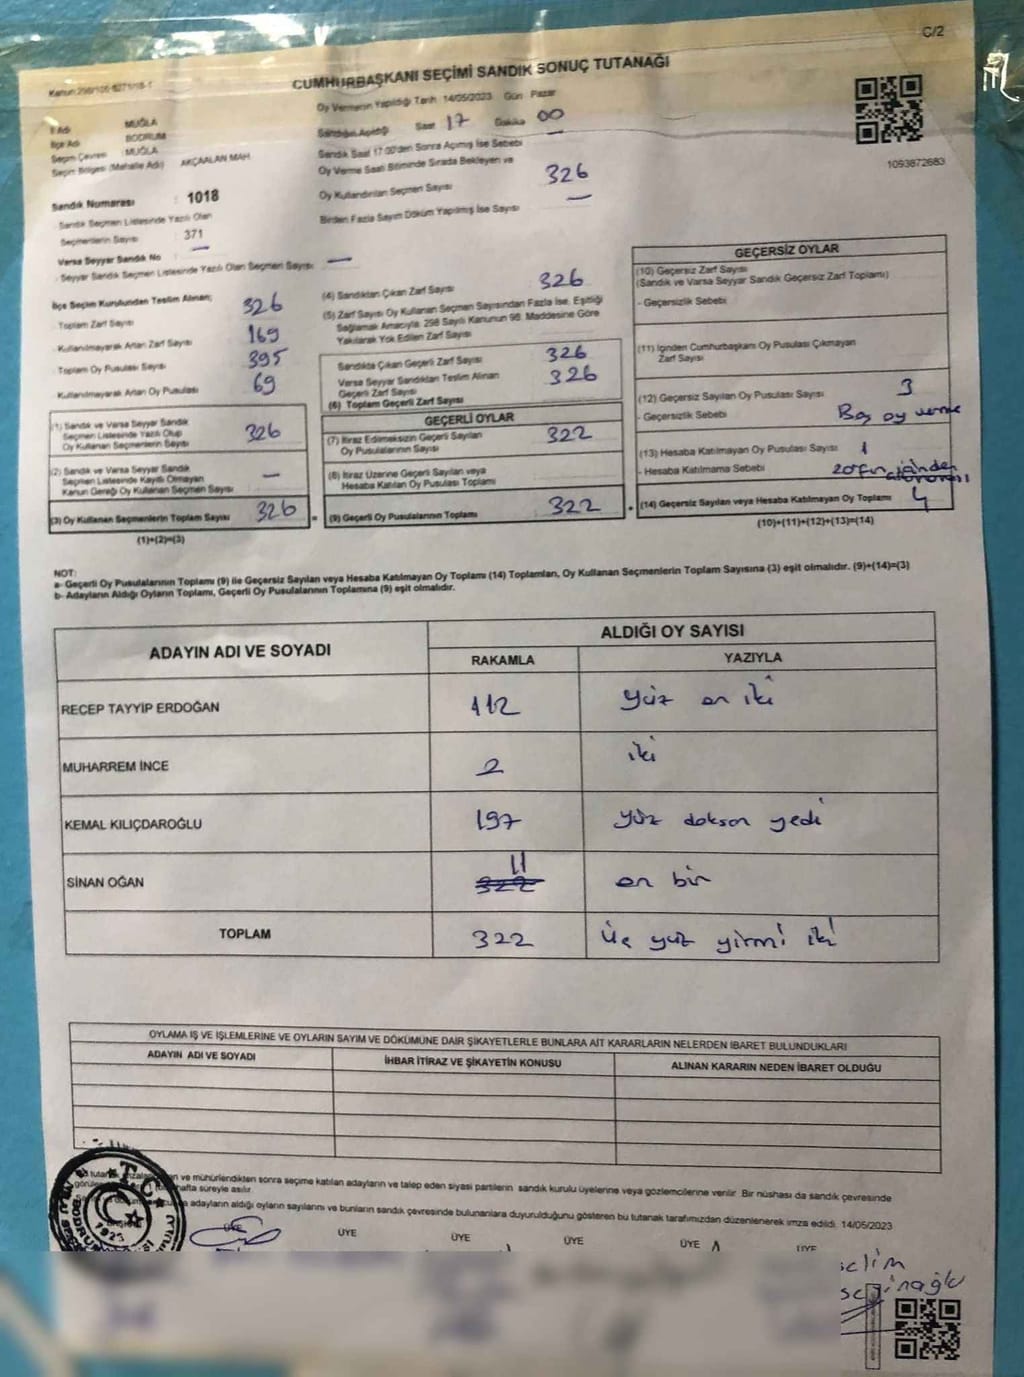 C/2
CUMHURBAŞKANI SEÇİMİ SANDIK SONUÇ TUTANAĞI
Oy Vermenin Yapıldığı Tarih 14/05/2023 Gün Pazar
İl Adı MUĞLA
İlçe Adı BODRUM
Seçim Çevresi MUĞLA
Seçim Bölgesi (Mahalle Adı) AKÇAALAN MAH.
Sandık Numarası : 1018
Sandık Seçmen Listesinde Yazılı Olan
Seçmenlerin Sayısı : 371
Varsa Seyyar Sandık No —
Seyyar Sandık Seçmen Listesinde Yazılı Olan Seçmen Sayısı —
Sandığın Açıldığı Saat 17 Dakika 00
Sandık Saat 17:00'den Sonra Açılmış İse Sebebi —
Oy Verme Saati Bitiminde Sırada Bekleyen ve
Oy Kullandırılan Seçmen Sayısı 326
Birden Fazla Sayım Döküm Yapılmış İse Sayısı —
1093872683
İlçe Seçim Kurulundan Teslim Alınan;
Toplam Zarf Sayısı 326
Kullanılmayarak Artan Zarf Sayısı 169
Toplam Oy Pusulası Sayısı 395
Kullanılmayarak Artan Oy Pusulası 69
(1) Sandık ve Varsa Seyyar Sandık
Seçmen Listesinde Yazılı Olup
Oy Kullanan Seçmenlerin Sayısı 326
(2) Sandık ve Varsa Seyyar Sandık
Seçmen Listesinde Kayıtlı Olmayan
Kanun Gereği Oy Kullanan Seçmen Sayısı —
(3) Oy Kullanan Seçmenlerin Toplam Sayısı 326
(1)+(2)=(3)
(4) Sandıktan Çıkan Zarf Sayısı 326
(5) Zarf Sayısı Oy Kullanan Seçmen Sayısından Fazla İse, Eşitliği
Sağlamak Amacıyla, 298 Sayılı Kanunun 98. Maddesine Göre
Yakılarak Yok Edilen Zarf Sayısı
Sandıkta Çıkan Geçerli Zarf Sayısı 326
Varsa Seyyar Sandıktan Teslim Alınan
Geçerli Zarf Sayısı 326
(6) Toplam Geçerli Zarf Sayısı
GEÇERLİ OYLAR
(7) İtiraz Edilmeksizin Geçerli Sayılan
Oy Pusulalarının Sayısı 322
(8) İtiraz Üzerine Geçerli Sayılan veya
Hesaba Katılan Oy Pusulası Toplamı
= (9) Geçerli Oy Pusulalarının Toplamı 322
GEÇERSİZ OYLAR
(10) Geçersiz Zarf Sayısı
(Sandık ve Varsa Seyyar Sandık Geçersiz Zarf Toplamı)
- Geçersizlik Sebebi
(11) İçinden Cumhurbaşkanı Oy Pusulası Çıkmayan
Zarf Sayısı
(12) Geçersiz Sayılan Oy Pusulası Sayısı 3
- Geçersizlik Sebebi Boş oy verme
(13) Hesaba Katılmayan Oy Pusulası Sayısı 1
- Hesaba Katılmama Sebebi zarfın içinden
+ (14) Geçersiz Sayılan veya Hesaba Katılmayan Oy Toplamı 4
(10)+(11)+(12)+(13)=(14)
NOT:
a- Geçerli Oy Pusulalarının Toplamı (9) ile Geçersiz Sayılan veya Hesaba Katılmayan Oy Toplamı (14) Toplamları, Oy Kullanan Seçmenlerin Toplam Sayısına (3) eşit olmalıdır. (9)+(14)=(3)
b- Adayların Aldığı Oyların Toplamı, Geçerli Oy Pusulalarının Toplamına (9) eşit olmalıdır.
ADAYIN ADI VE SOYADI
ALDIĞI OY SAYISI
RAKAMLA YAZIYLA
RECEP TAYYİP ERDOĞAN 112 yüz on iki
MUHARREM İNCE 2 iki
KEMAL KILIÇDAROĞLU 197 yüz doksan yedi
SİNAN OĞAN 322 11 on bir
TOPLAM 322 Üç yüz yirmi iki
OYLAMA İŞ VE İŞLEMLERİNE VE OYLARIN SAYIM VE DÖKÜMÜNE DAİR ŞİKAYETLERLE BUNLARA AİT KARARLARIN NELERDEN İBARET BULUNDUKLARI
ADAYIN ADI VE SOYADI İHBAR İTİRAZ VE ŞİKAYETİN KONUSU ALINAN KARARIN NEDEN İBARET OLDUĞU
ve mühürlendikten sonra seçime katılan adayların ve talep eden siyasi partilerin sandık kurulu üyelerine veya gözlemcilerine verilir. Bir nüshası da sandık çevresinde
hafta süreyle asılır.
adayların aldığı oyların sayılarını ve bunların sandık çevresinde bulunanlara duyurulduğunu gösteren bu tutanak tarafımızdan düzenlenerek imza edildi. 14/05/2023
T.C.
1923
ÜYE ÜYE ÜYE ÜYE ÜYE ÜYE
selim